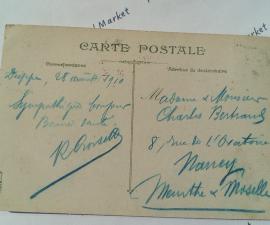 Market
Market
CARTE POSTALE
Correspondance
Adresse du destinataire
Dieppe, 28 août 1910
Sympathique bonjour
Bonne santé
R Croisille
Madame & Monsieur
Charles Bertrand
8 rue de l'Oratoire
Nancy
Meurthe & Moselle